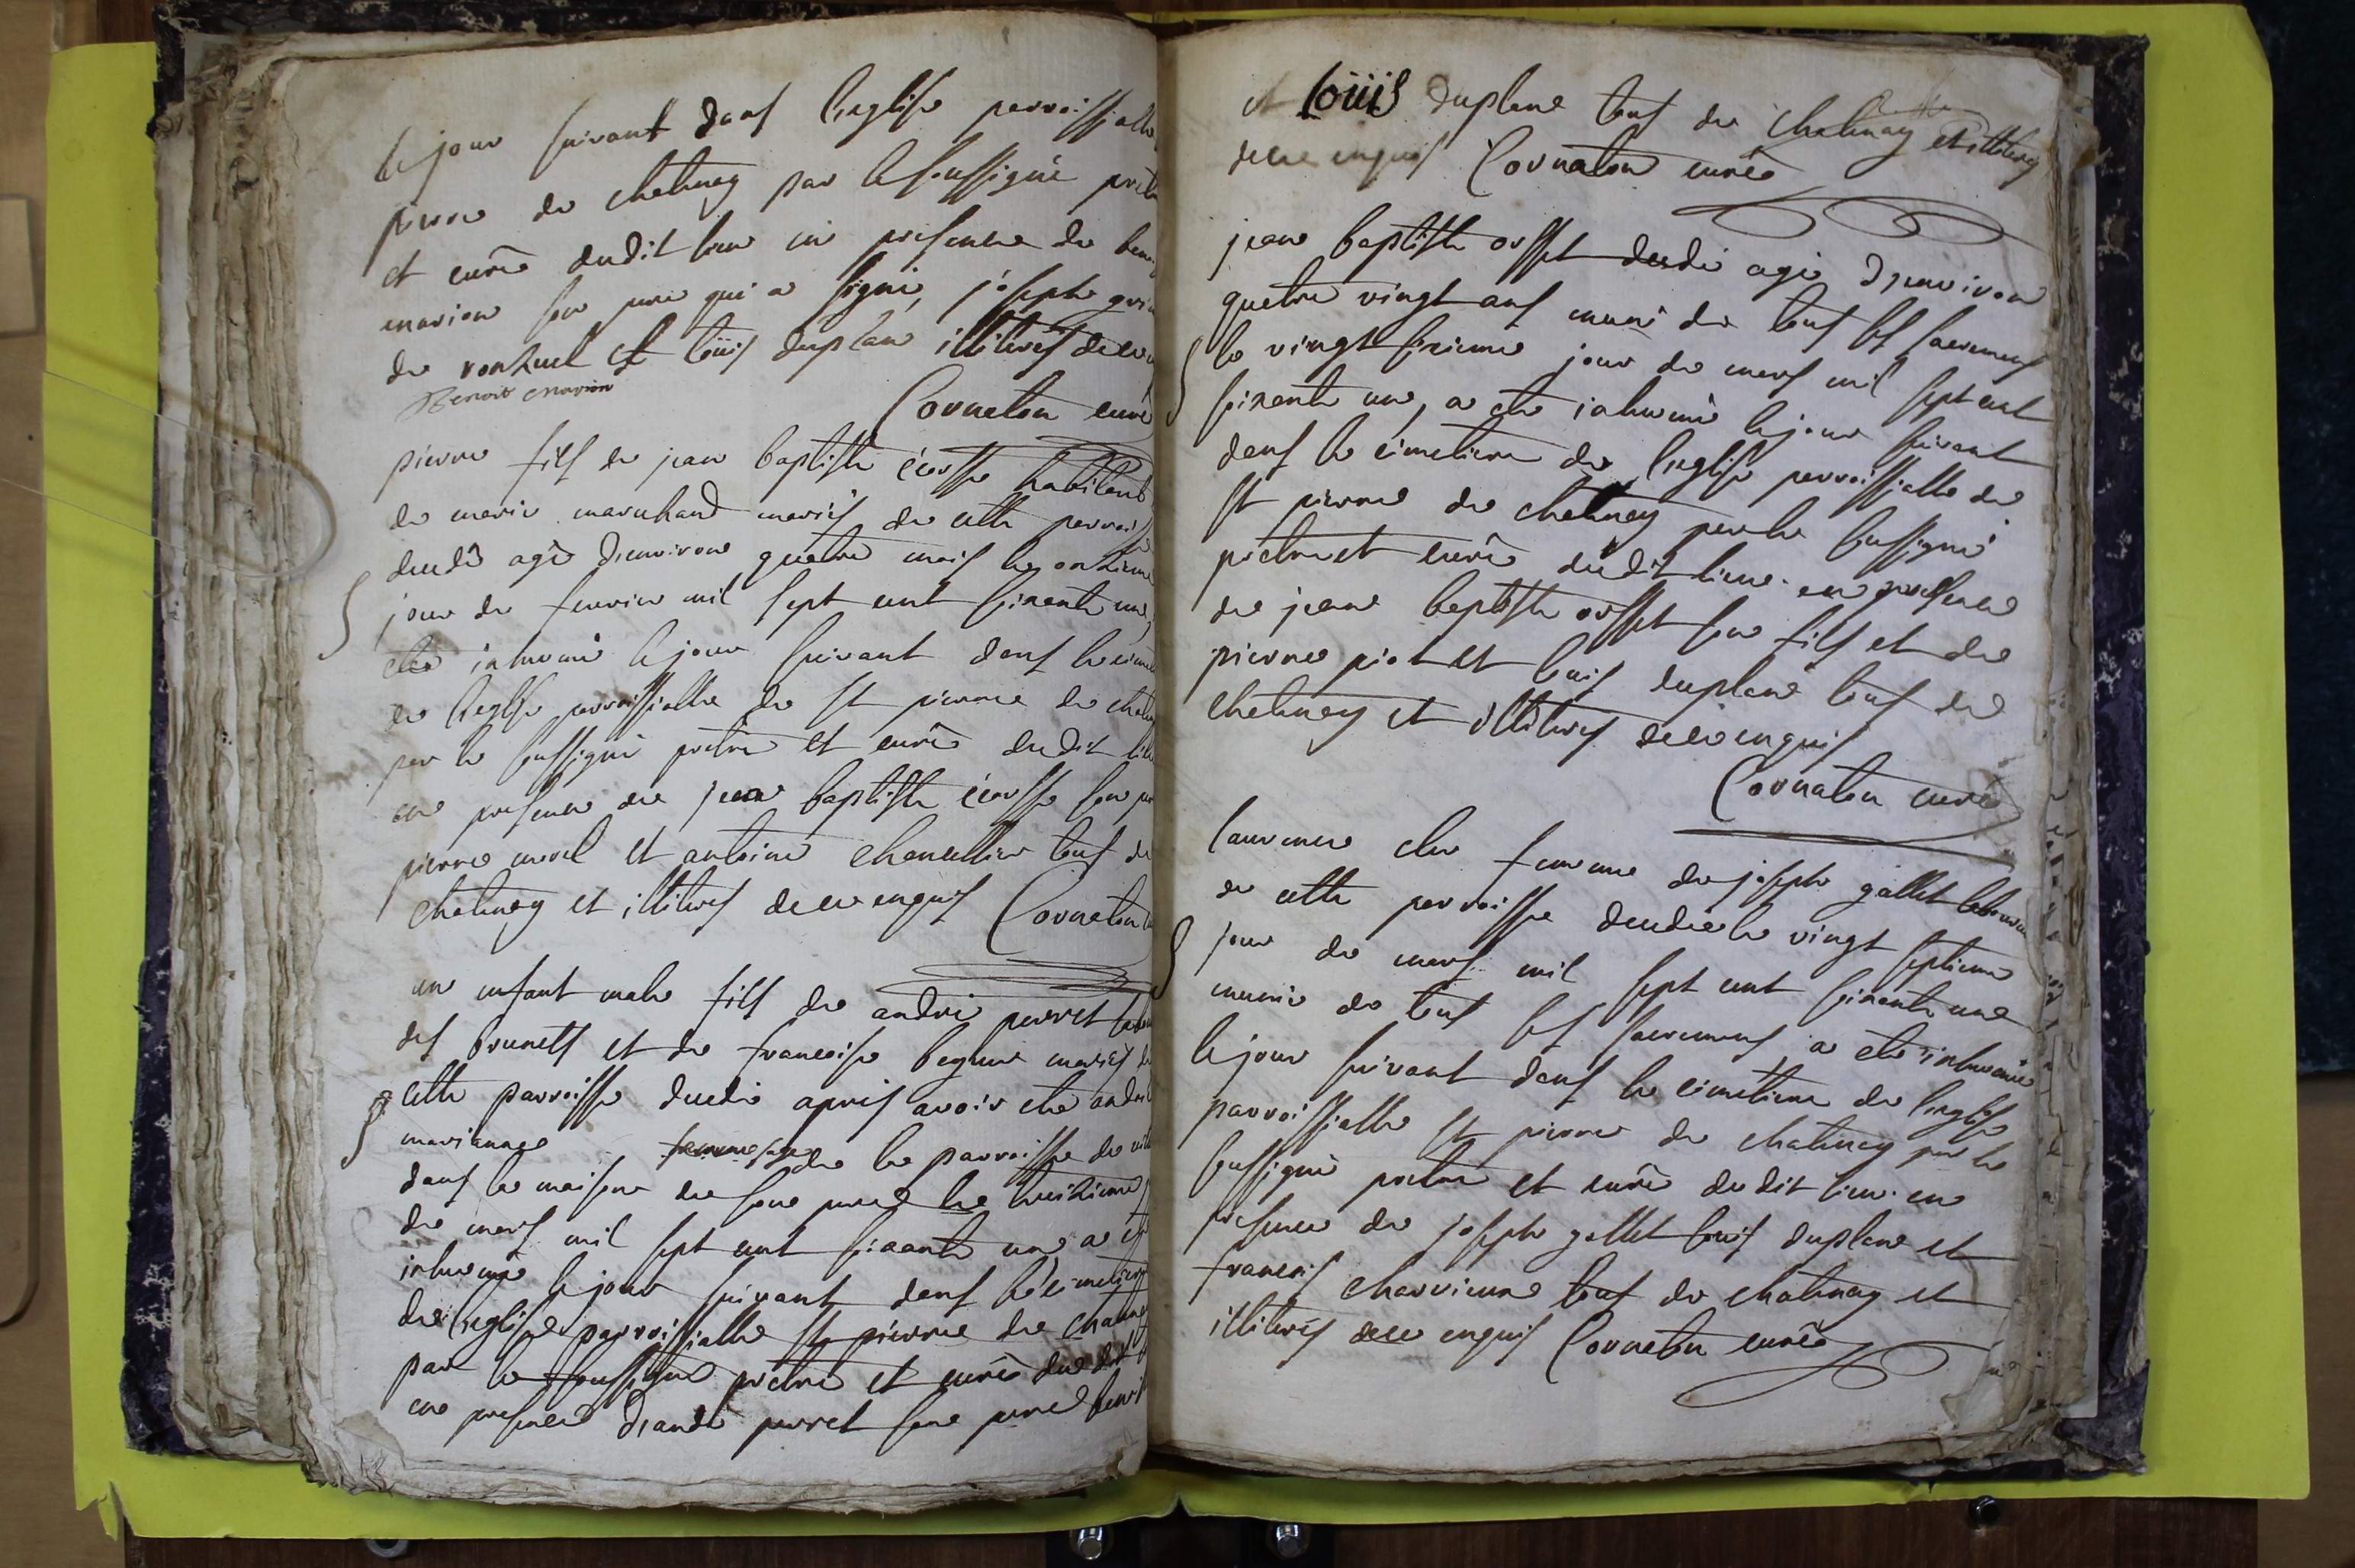 le jour suivant dans l'eglise parroissialle
pierre de chatenay par le soussigné pretre
et curé dudit lieu en presence de benoit
marion son pere qui a signé, joseph
de ronzuel et loüis duplan illiterés de ce
Benoit marion
Cornaton curé
pierre fils de jean baptiste écosse habitant
de marie marchand mariés de cette parroisse
decedé agé d'environ quatre mois le onzieme
jour de fevrier mil sept cent soixante un,
eté inhumé le jour suivant dans le cime
de l'eglise parroissialle de st pierre de chaten
par le soussigné pretre et curé dudit lieu
en presence de jean baptiste écosse son pere
pierre morel et antoine chancellier tous de
chatenay et illiterés de ce enquis Cornaton
un enfant male fils de andré perret
des brunets et de françoise beguet mariés de
cette parroisse decedé apres avoir eté
marianne femme sage de la parroisse de
dans la maison de son pere le treizieme
de mars mil sept cent soixante un a eté
inhumé le jour suivant dans le cimetiere
de l'eglise parroissialle st pierre de chatenay
par le soussigné pretre et curé du dit
en presence d'andré perret son pere benoit
et loüis duplan tous de chatenay et illiterés
de ce enquis Cornaton curé
jean baptiste orsset decedé agé d'environ
quatre vingt ans muni de tous les sacremens
le vingt sixieme jour de mars mil sept cent
soixante un, a eté inhumé le jour suivant
dans le cimetiere de l'eglise parroissialle de
st pierre de chatenay par le soussigné
pretre et curé dudit lieu en presence
de jean baptiste orsset son fils et de
pierre piot et loüis duplan tous de
chatenay et illiterés de ce enquis
Cornaton curé
laurence femme de joseph gallet laboureur
de cette parroisse decedée le vingt septieme
jour de mars mil sept cent soixante un
munie de tous les sacremens a eté inhumée
le jour suivant dans le cimetiere de l'eglise
parroissialle st pierre de chatenay par le
soussigné pretre et curé dudit lieu en
presence de joseph gallet loüis duplan et
françois charvieux tous de chatenay et
illiterés de ce enquis Cornaton curé